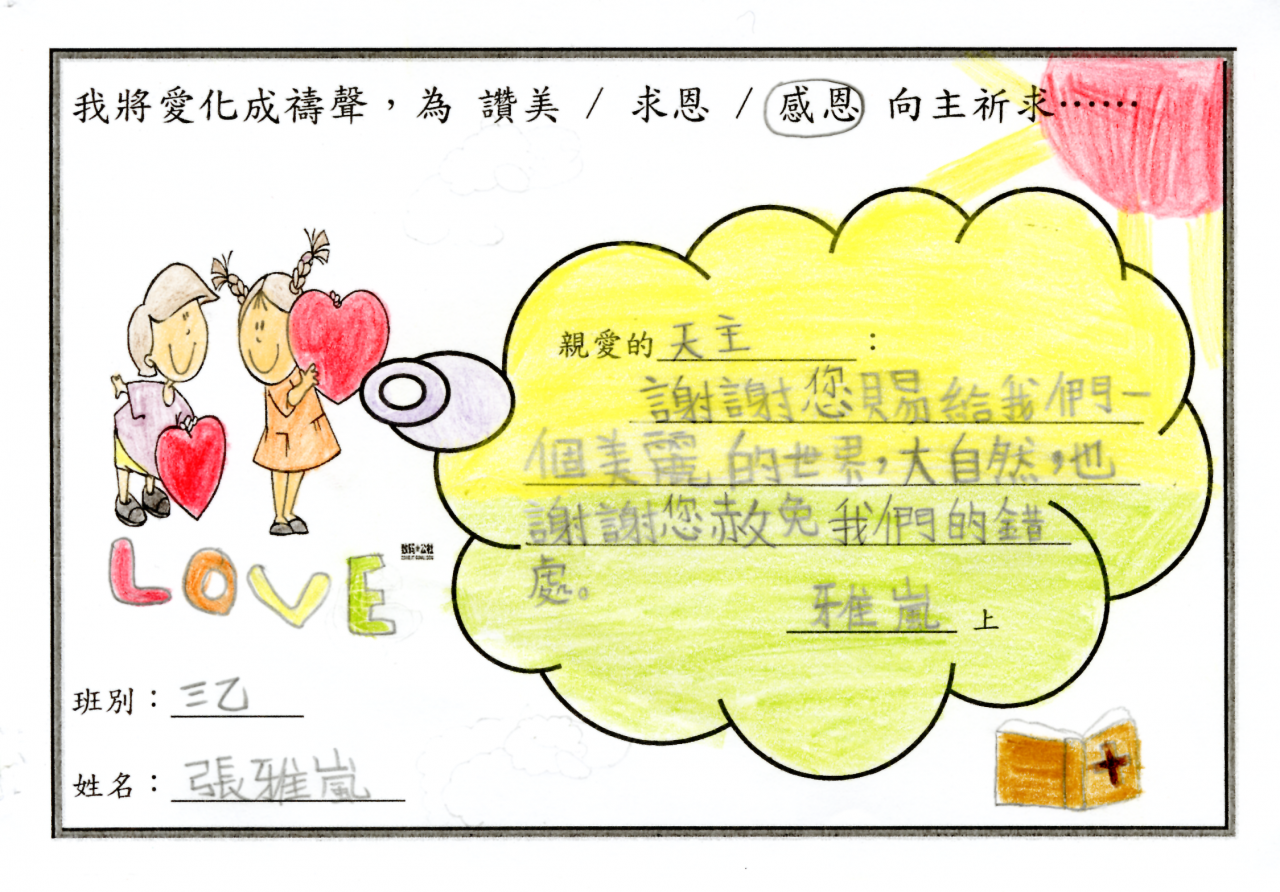 我將愛化成禱聲，為 讚美 / 求恩 / 感恩 向主祈求……
親愛的天主：
謝謝您賜給我們一
個美麗的世界，大自然，也
謝謝您赦免我們的錯
處。
雅嵐 上
LOVE
班別：三乙
姓名：張雅嵐